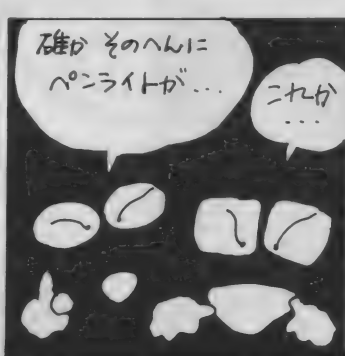 確か そのへんに
ペンライトが...
これか
...